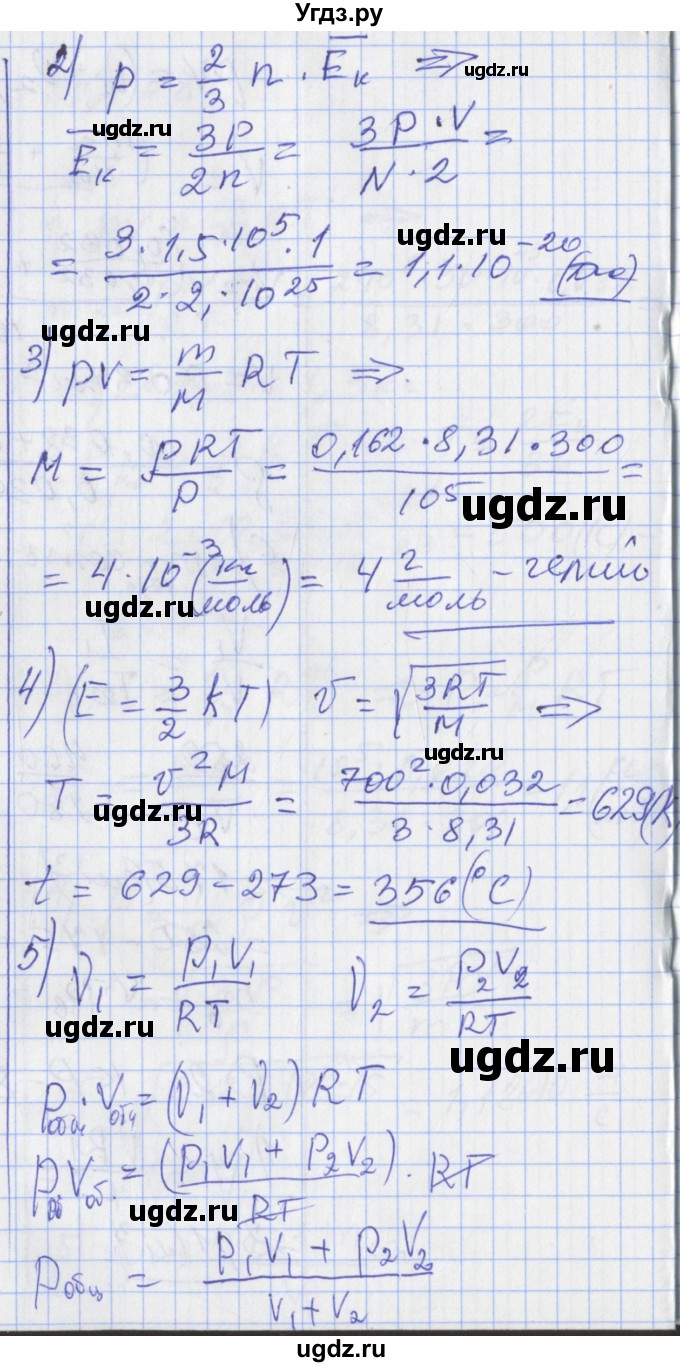 Угдз.ру
2) p = 2/3 n · Eк ⇒
ugdz.ru
ugdz.ru
Eк = 3P/2n = 3P·V/N·2 =
= 3·1,5·10⁵·1/2·2,·10²⁵ = 1,1·10⁻²⁰ (Дж)
ugdz.ru
ugdz.ru
3) pV = m/M RT ⇒.
M = ρRT/P = 0,162·8,31·300/10⁵ =
ugdz.ru
= 4·10⁻³ (кг/моль) = 4 г/моль - гелий
ugdz.ru
4) (E = 3/2 kT) v = √3RT/M ⇒
ugdz.ru
T = v²M/3R = 700²·0,032/3·8,31 = 629(K)
ugdz.ru
t = 629 - 273 = 356 (°C)
5) ν₁ = p₁V₁/RT ν₂ = p₂V₂/RT
ugdz.ru
ugdz.ru
Pобщ·Vобщ = (ν₁ + ν₂) RT
PобVоб. = (p₁V₁ + p₂V₂)/RT · RT
ugdz.ru
Pобщ = p₁V₁ + p₂V₂/V₁+V₂
ugdz.ru